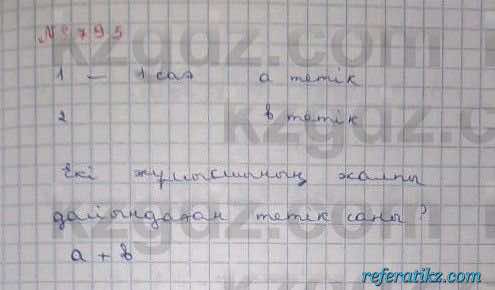 № 795
1 — 1 сағ а тетік
2 в тетік
Екі жұмысшының жалпы
дайындаған тетік саны?
а + в
kzgdz.com
referatikz.com